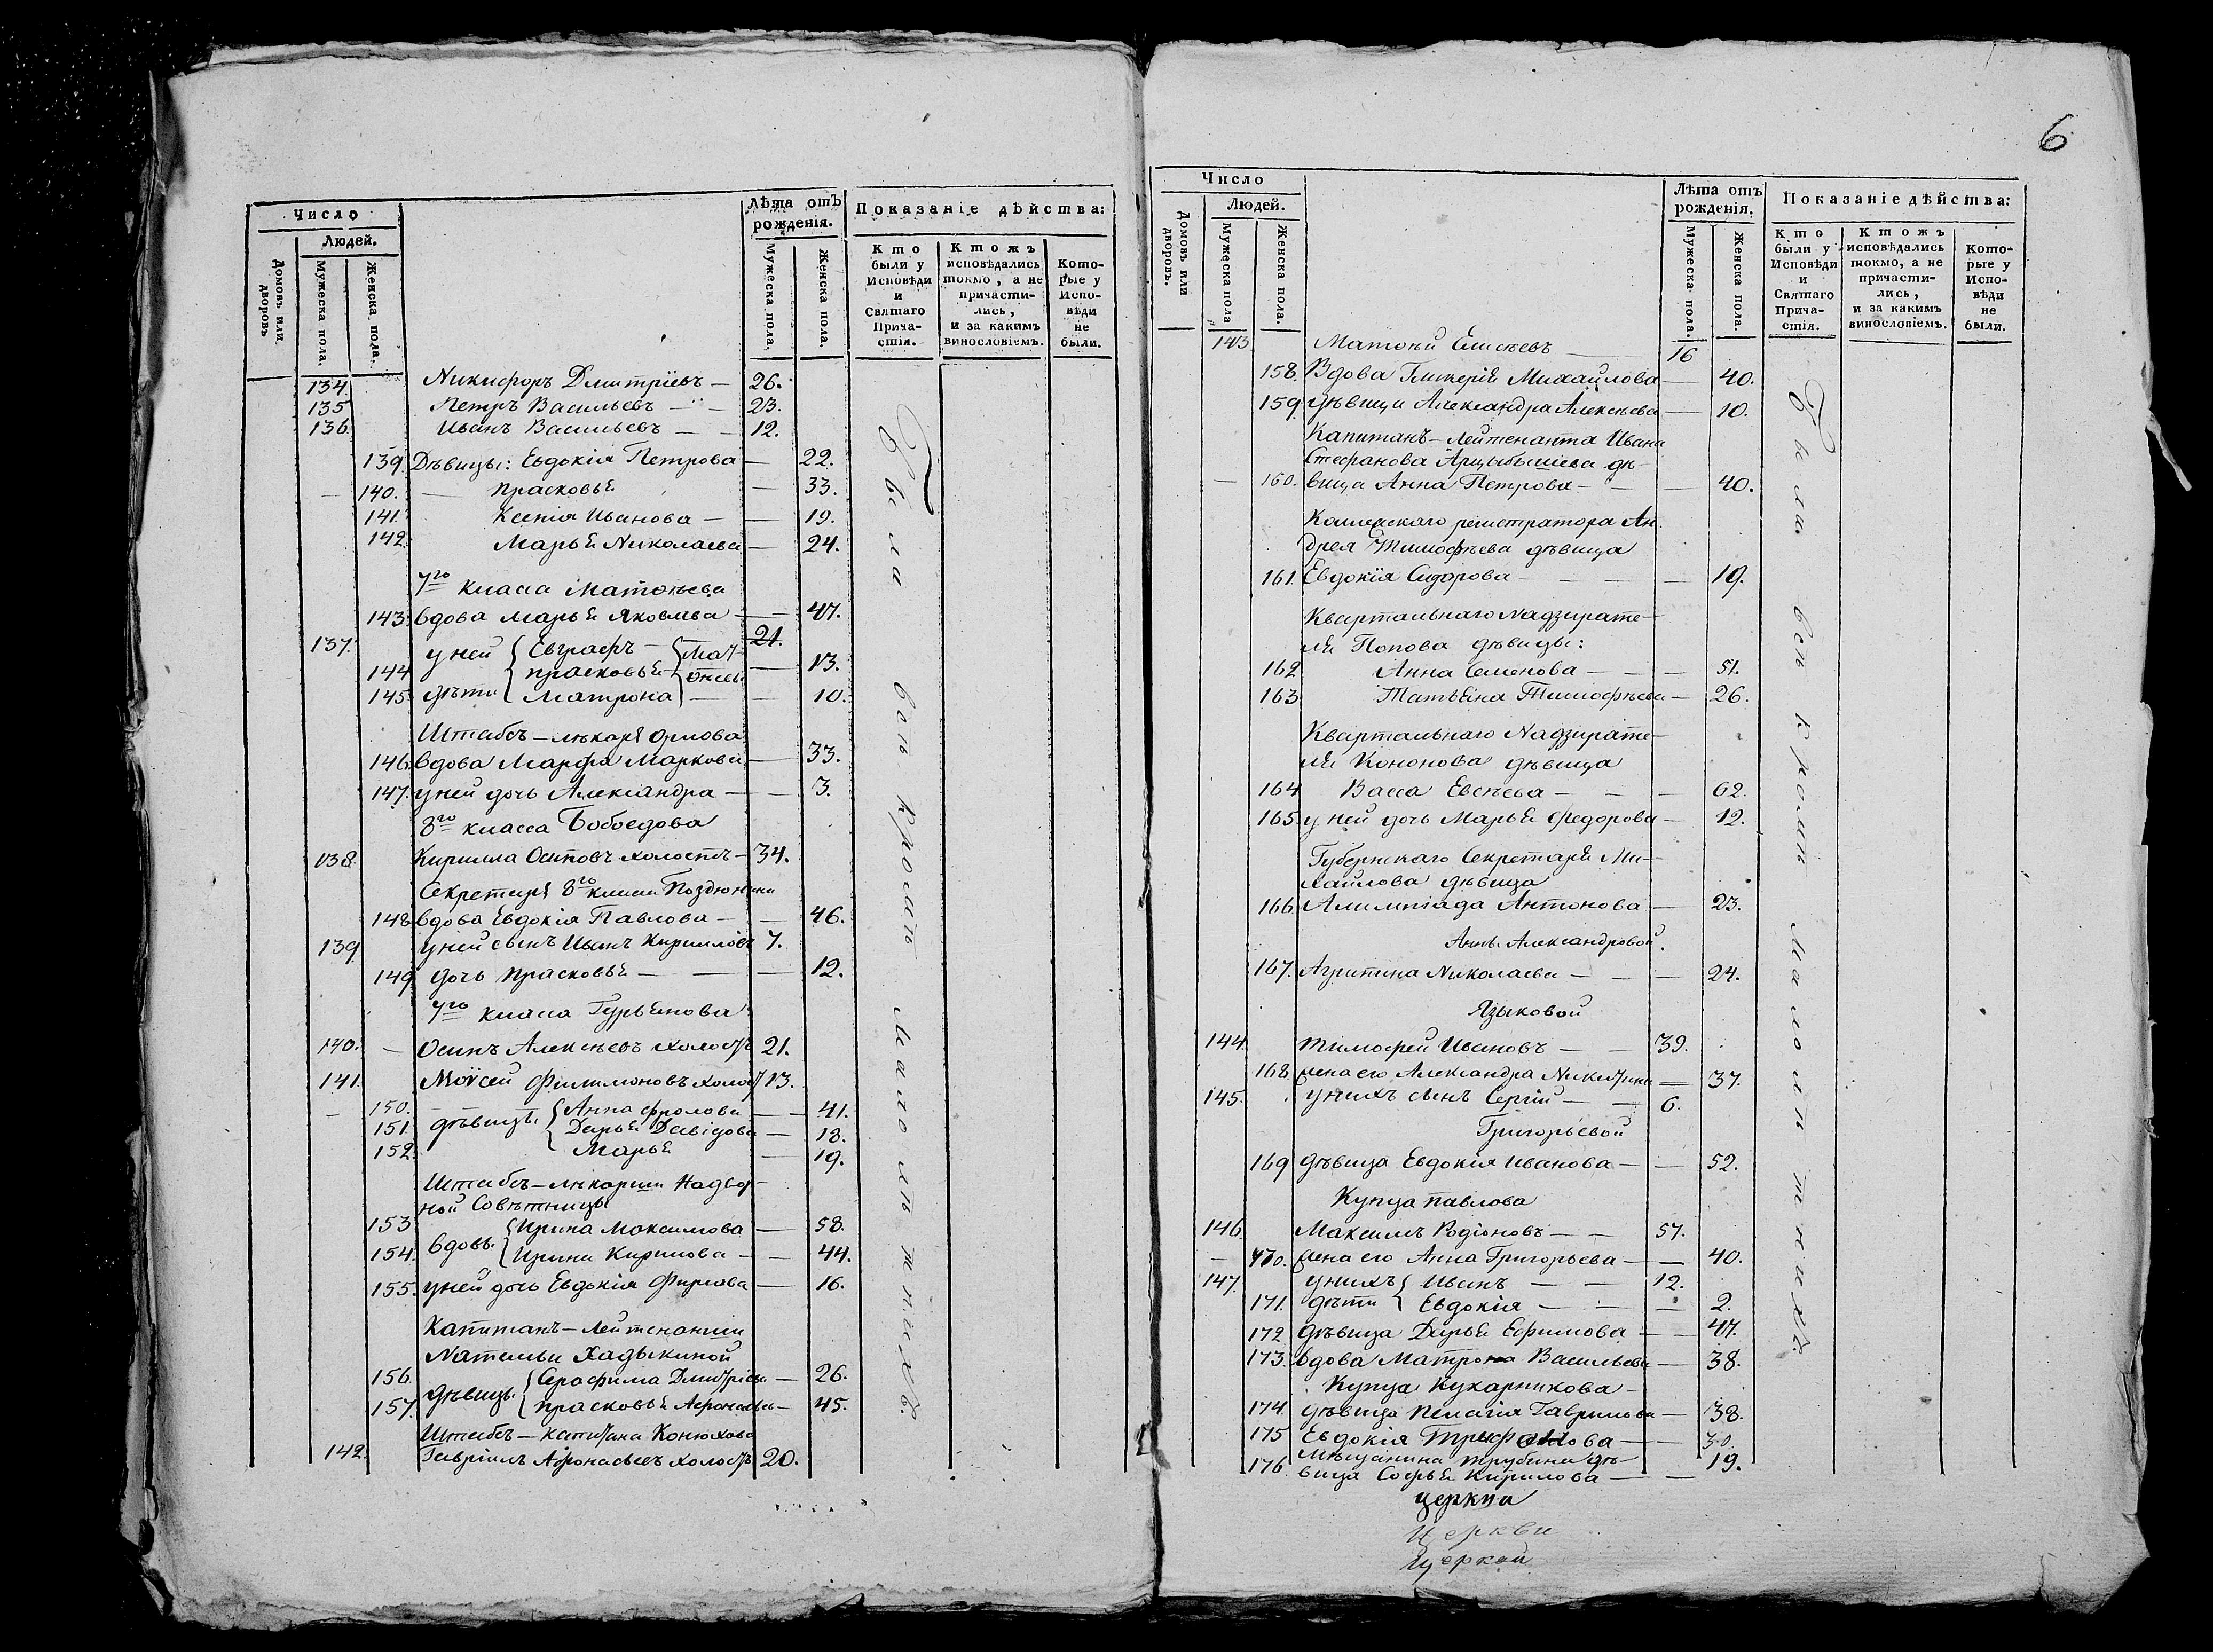 Число
Людей.
Домовъ или дворовъ
Мужеска пола.
Женска пола.
Лѣта отъ рожденія.
Мужеска пола.
Женска пола.
Показаніе дѣйства:
Кто были у Исповѣди и Святаго Прича-стія.
Ктожъ исповѣдались токмо, а не причасти-лись, и за какимъ винословіемъ.
Кото-рые у Испо-вѣди не были.
134. Никифоръ Дмитріевъ — 26.
135 Петръ Васильевъ — — 23.
136 Иванъ Васильевъ — — 12.
139. Дѣвицы: Евдокія Петрова — 22.
— 140. — Прасковья — 33.
141. Ксенія Иванова — — 19.
142. Марья Николаева — 24.
7го класса Матѳѣева
143. вдова Марья Яковлева — — 47.
137. у ней Евграфъ — 21.
144 Прасковья — 13.
145 дѣти Матрона — — 10.
Штабсъ-лѣкаря Орлова
146. вдова Марфа Маркова — 33.
147. у ней дочь Александра — — 3.
8го класса Бобоедова
138. Кирилла Осиповъ холостъ — 34.
Секретаря 8го класса
148 вдова Евдокія Павлова — — 46.
139. у ней сынъ Иванъ Кирилловъ 7.
149 дочь Прасковья — — — 12.
7го класса Гурьянова
140. — Осипъ Алексѣевъ холостъ 21.
141. Моѵсей Филимоновъ холостъ 13.
150. дѣвицы Анна Фролова — — 41.
151. Дарья Давидова — 18.
152. Марья — 19.
Штабсъ-лѣкарши Надвор-
ной Совѣтницы
153 Ирина Максимова — 58.
154. вдовы Ирина Кирилова — — 44.
155. у ней дочь Евдокія Фирсова — 16.
Капитанъ-Лейтенанши
Натальи Хадыкиной
156. Серафима Дмитріева — 26.
157. дѣвицы Прасковья Аѳонасьева — 45.
Штабсъ-капитана Конюхова
142. Гавріилъ Аѳонасьевъ холостъ 20.
Были во вторникъ
6
Число
Людей.
Домовъ или дворовъ.
Мужеска пола
Женска пола.
Лѣта отъ рожденія.
Мужеска пола.
Женска пола.
Показаніе дѣйства:
Кто были у Исповѣди и Святаго Прича-стія.
Ктожъ исповѣдались токмо, а не причасти-лись, и за какимъ винословіемъ.
Кото-рые у Испо-вѣди не были.
143 Матѳѣй Елисѣевъ — 16
158. Вдова Гликерія Михайлова — 40.
159. дѣвица Александра Алексѣева — 10.
Капитанъ-Лейтенанта Ивана
Стефанова Арцыбышева дѣ-
— 160. вица Анна Петрова — — — 40.
Коллежскаго регистратора Ан-
дрея Тимофѣева дѣвица
161. Евдокія Сидорова — — — — 19.
Квартальнаго Надзирате-
ля Попова дѣвицы:
162 Анна Семенова — — — 51.
163 Татьяна Тимофѣева — 26.
Квартальнаго Надзирате-
ля Кононова дѣвица
164 Васса Евсѣева — — — 62.
165. у ней дочь Марья Федорова — 12.
Губернскаго Секретаря Ми-
хайлова дѣвица
166. Алимпіада Антонова — 23.
Анны Александровой.
167. Агрипина Николаева — — — 24.
Языковой
144. Тимофей Ивановъ — — 39.
168. жена его Александра Никитина — 37.
145. у нихъ сынъ Сергій — — 6.
Григорьевой
169 дѣвица Евдокія Иванова — — 52.
Купца Павлова
146 Максимъ Родіоновъ — — 57.
— 170. жена его Анна Григорьева — — 40.
147. у нихъ Иванъ — — 12.
171. дѣти Евдокія — — — 2.
172. дѣвица Дарья Ефимова — — 47.
173. вдова Матрона Васильева — 38.
Купца Кукарникова —
174. дѣвица Пелагія Гаврилова — 38.
175 Евдокія Трыфонова — — 30.
Мѣщанина Трубина дѣ-
176. вица Софья Кирилова — — 19.
церкви
Церкви
Церкви